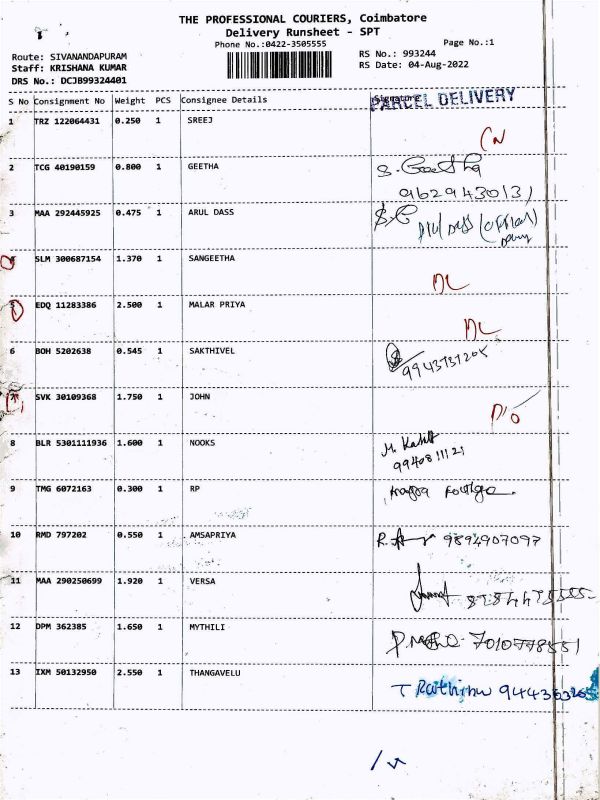 THE PROFESSIONAL COURIERS, Coimbatore
Delivery Runsheet - SPT
Phone No.:0422-3505555
Page No.:1
Route: SIVANANDAPURAM
RS No.: 993244
Staff: KRISHANA KUMAR
RS Date: 04-Aug-2022
DRS No.: DCJB99324401
S No Consignment No Weight PCS Consignee Details Signature
PARCEL DELIVERY
1 TRZ 122064431 0.250 1 SREEJ
2 TCG 40190159 0.800 1 GEETHA S. Geetha
9629430131
3 MAA 292445925 0.475 1 ARUL DASS
4 SLM 300687154 1.370 1 SANGEETHA DL
5 EDQ 11283386 2.500 1 MALAR PRIYA DL
6 BOH 5202638 0.545 1 SAKTHIVEL
7 SVK 30109368 1.750 1 JOHN
8 BLR 5301111936 1.600 1 NOOKS
9 TMG 6072163 0.300 1 RP
10 RMD 797202 0.550 1 AMSAPRIYA 9894907097
11 MAA 290250699 1.920 1 VERSA
12 DPM 362385 1.650 1 MYTHILI
13 IXM 50132950 2.550 1 THANGAVELU T Rathinu